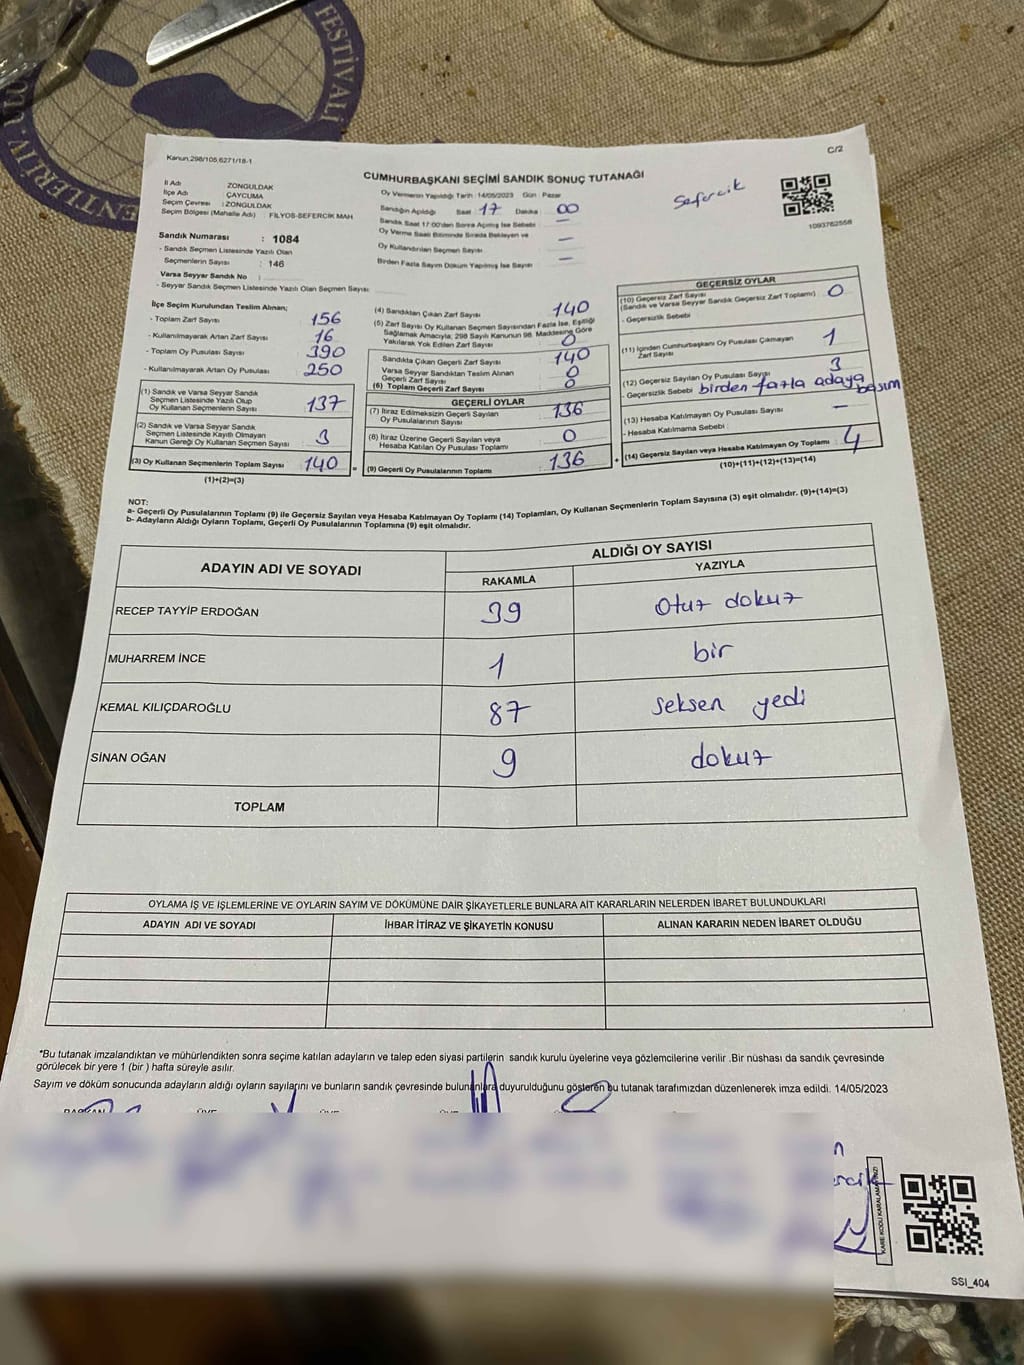 FESTİVALİ
Kanun.298/105,6271/18-1
C/2
CUMHURBAŞKANI SEÇİMİ SANDIK SONUÇ TUTANAĞI
Sefercik
1093762558
İl Adı ZONGULDAK
İlçe Adı ÇAYCUMA
Seçim Çevresi : ZONGULDAK
Seçim Bölgesi (Mahalle Adı) FİLYOS-SEFERCİK MAH
Sandık Numarası : 1084
- Sandık Seçmen Listesinde Yazılı Olan
Seçmenlerin Sayısı : 146
Varsa Seyyar Sandık No :
- Seyyar Sandık Listesinde Yazılı Olan Seçmen Sayısı:
Oy Vermenin Yapıldığı Tarih : 14/05/2023 Gün : Pazar
Sandığın Açıldığı Saat 17 Dakika : 00
Sandık Saat 17:00'den Sonra Açılmış İse Sebebi : —
Oy Verme Saati Bitiminde Sırada Bekleyen ve
Oy Kullandırılan Seçmen Sayısı : —
Birden Fazla Sayım Döküm Yapılmış İse Sayısı : —
İlçe Seçim Kurulundan Teslim Alınan;
- Toplam Zarf Sayısı : 156
- Kullanılmayarak Artan Zarf Sayısı : 16
- Toplam Oy Pusulası Sayısı : 390
- Kullanılmayarak Artan Oy Pusulası : 250
(1) Sandık ve Varsa Seyyar Sandık
Seçmen Listesinde Yazılı Olup
Oy Kullanan Seçmenlerin Sayısı : 137
(2) Sandık ve Varsa Seyyar Sandık
Seçmen Listesinde Kayıtlı Olmayan
Kanun Gereği Oy Kullanan Seçmen Sayısı : 3
(3) Oy Kullanan Seçmenlerin Toplam Sayısı : 140 =
(1)+(2)=(3)
(4) Sandıktan Çıkan Zarf Sayısı : 140
(5) Zarf Sayısı Oy Kullanan Seçmen Sayısından Fazla İse, Eşitliği
Sağlamak Amacıyla; 298 Sayılı Kanunun 98. Maddesine Göre
Yakılarak Yok Edilen Zarf Sayısı : 0
Sandıkta Çıkan Geçerli Zarf Sayısı : 140
Varsa Seyyar Sandıktan Teslim Alınan
Geçerli Zarf Sayısı : 0
(6) Toplam Geçerli Zarf Sayısı : 0
GEÇERLİ OYLAR
(7) İtiraz Edilmeksizin Geçerli Sayılan
Oy Pusulalarının Sayısı : 136
(8) İtiraz Üzerine Geçerli Sayılan veya
Hesaba Katılan Oy Pusulası Toplamı : 0
(9) Geçerli Oy Pusulalarının Toplamı : 136 +
GEÇERSİZ OYLAR
(10) Geçersiz Zarf Sayısı
(Sandık ve Varsa Seyyar Sandık Geçersiz Zarf Toplamı) : 0
- Geçersizlik Sebebi
(11) İçinden Cumhurbaşkanı Oy Pusulası Çıkmayan
Zarf Sayısı : 1
(12) Geçersiz Sayılan Oy Pusulası Sayısı : 3
- Geçersizlik Sebebi birden fazla adaya
basım
(13) Hesaba Katılmayan Oy Pusulası Sayısı : —
- Hesaba Katılmama Sebebi :
(14) Geçersiz Sayılan veya Hesaba Katılmayan Oy Toplamı : 4
(10)+(11)+(12)+(13)=(14)
NOT:
a- Geçerli Oy Pusulalarının Toplamı (9) ile Geçersiz Sayılan veya Hesaba Katılmayan Oy Toplamı (14) Toplamları, Oy Kullanan Seçmenlerin Toplam Sayısına (3) eşit olmalıdır. (9)+(14)=(3)
b- Adayların Aldığı Oyların Toplamı, Geçerli Oy Pusulalarının Toplamına (9) eşit olmalıdır.
ADAYIN ADI VE SOYADI
ALDIĞI OY SAYISI
RAKAMLA YAZIYLA
RECEP TAYYİP ERDOĞAN 39 otuz dokuz
MUHARREM İNCE 1 bir
KEMAL KILIÇDAROĞLU 87 seksen yedi
SİNAN OĞAN 9 dokuz
TOPLAM
OYLAMA İŞ VE İŞLEMLERİNE VE OYLARIN SAYIM VE DÖKÜMÜNE DAİR ŞİKAYETLERLE BUNLARA AİT KARARLARIN NELERDEN İBARET BULUNDUKLARI
ADAYIN ADI VE SOYADI İHBAR İTİRAZ VE ŞİKAYETİN KONUSU ALINAN KARARIN NEDEN İBARET OLDUĞU
*Bu tutanak imzalandıktan ve mühürlendikten sonra seçime katılan adayların ve talep eden siyasi partilerin sandık kurulu üyelerine veya gözlemcilerine verilir .Bir nüshası da sandık çevresinde
görülecek bir yere 1 (bir ) hafta süreyle asılır.
Sayım ve döküm sonucunda adayların aldığı oyların sayılarını ve bunların sandık çevresinde bulunanlara duyurulduğunu gösteren bu tutanak tarafımızdan düzenlenerek imza edildi. 14/05/2023
BAŞKAN ÜYE ÜYE ÜYE
KARE KODU KARALAMAYINIZ!
SSI_404